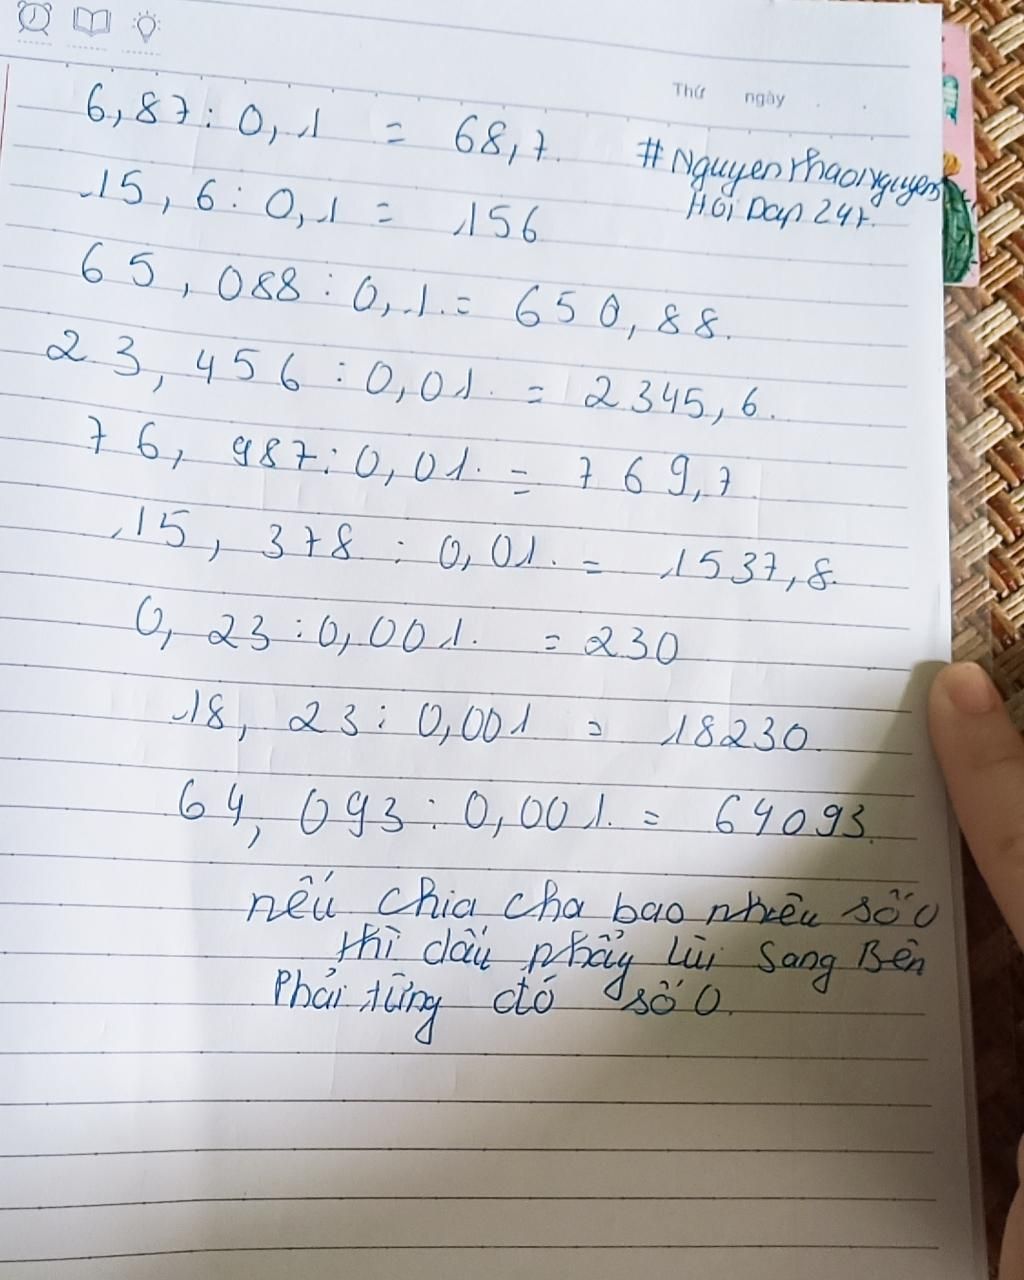 Thứ ngày
6,87 : 0,1 = 68,7.
#NguyenThaoNguyen
Hỏi Dap 247.
15,6 : 0,1 = 156
65,088 : 0,1. = 650,88.
23,456 : 0,01. = 2345,6.
76,987 : 0,01. = 769,7.
15,378 : 0,01. = 1537,8.
0,23 : 0,001. = 230
18,23 : 0,001 = 18230.
64,093 : 0,001. = 64093.
nếu chia cha bao nhiêu số 0
thì dấu phẩy lùi sang Bên
Phải từng đó số 0.